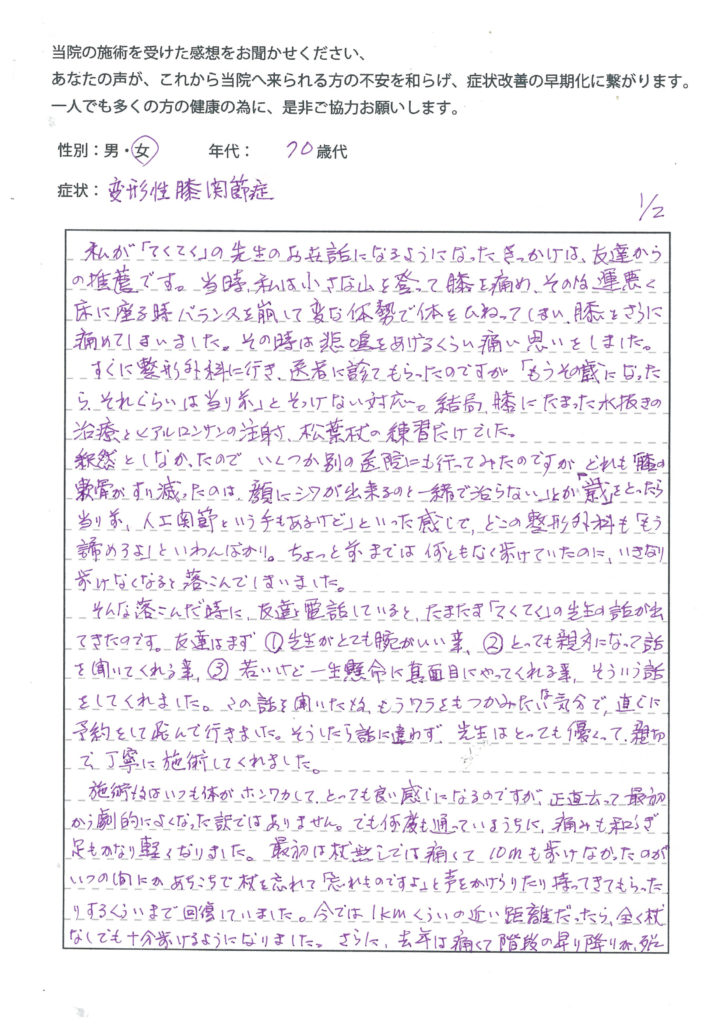 当院の施術を受けた感想をお聞かせください、
あなたの声が、これから当院へ来られる方の不安を和らげ、症状改善の早期化に繋がります。
一人でも多くの方の健康の為に、是非ご協力お願いします。
性別：男・女　年代：70歳代
症状：変形性膝関節症
1/2
私が「てくてく」の先生のお世話になるようになったきっかけは、友達から
の推薦です。当時、私は小さな山を登って膝を痛め、そのは運悪く
床に座る時バランスを崩して変な体勢で体をひねってしまい、膝をさらに
痛めてしまいました。その時は悲鳴をあげるくらい痛い思いをしました。
すぐに整形外科に行き、医者に診てもらったのですが「もうその歳になった
ら、それぐらいは当り前」とそっけない対応〜。結局、膝にたまった水抜きの
治療とヒアルロンサンの注射、松葉杖の練習だけでした。
釈然としなかったので いくつか別の医院にも行ってみたのですが、どれも「膝の
軟骨がすり減ったのは、顔にシワが出来るのと一緒で治らない」とか「歳をとったら
当り前、人工関節という手もあるけど」といった感じで、どこの整形外科も「もう
諦めろよ」といわんばかり。ちょっと前までは何ともなく歩けていたのに、いきなり
歩けなくなると落こんでしまいました。
そんな落こんだ時に、友達と電話していると、たまたま「てくてく」の先生の話が出
てきたのです。友達はまず ①先生がとても腕がいい事、②とっても親身になって話
を聞いてくれる事、③若いけど一生懸命に真面目にやってくれる事、そういう話
をしてくれました。この話を聞いた時、もうワラをもつかみたいな気分で、直ぐに
予約をして飛んで行きました。そうしたら話に違わず、先生はとっても優しくって、親切
で、丁寧に施術してくれました。
施術後はいつも体がホンワカして、とっても良い感じになるのですが、正直云って最初
から劇的によくなった訳ではありません。でも何度も通っているうちに、痛みも和らぎ
足もかなり軽くなりました。最初は杖無しでは痛くて10mも歩けなかったのが
いつの間にか あちこちで杖を忘れて「忘れものですよ」と声をかけられたり持ってきてもらった
りするくらいまで回復していました。今では1kmくらいの近い距離だったら、全く杖
なしでも十分歩けるようになりました。さらに、去年は痛くて階段の昇り降りが、殆ど